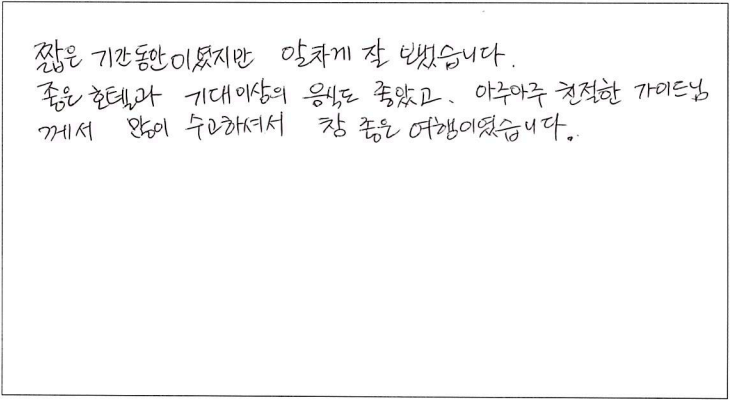 짧은 기간동안이였지만 알차게 잘 보냈습니다.
좋은 호텔과 기대이상의 음식도 좋았고, 아주아주 친절한 가이드님
께서 많이 수고하셔서 참 좋은 여행이였습니다.